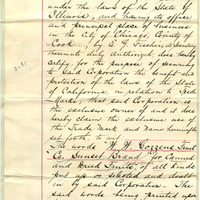 under the laws of the State of
Illinois, and having its office
and principal place of business
in the City of Chicago, County of
Cook, by E. G. its Secretary
thereunto duly authorized, does hereby
certify, for the purpose of securing
to said Corporation the benefit and
protection of the laws of the State
of California, in relation to Trade
Marks, that said Corporation is
the exclusive owner of and it does
hereby claim the exclusive use of
the Trade Mark and Name hereinafter
set forth to wit:
The words "W. W. Cozzens Fruit
Co. Sunset Brand", for Canned
and Dried Fruits, of all kinds
put up or selected and dealt
in by said Corporation. The
said words being printed upon